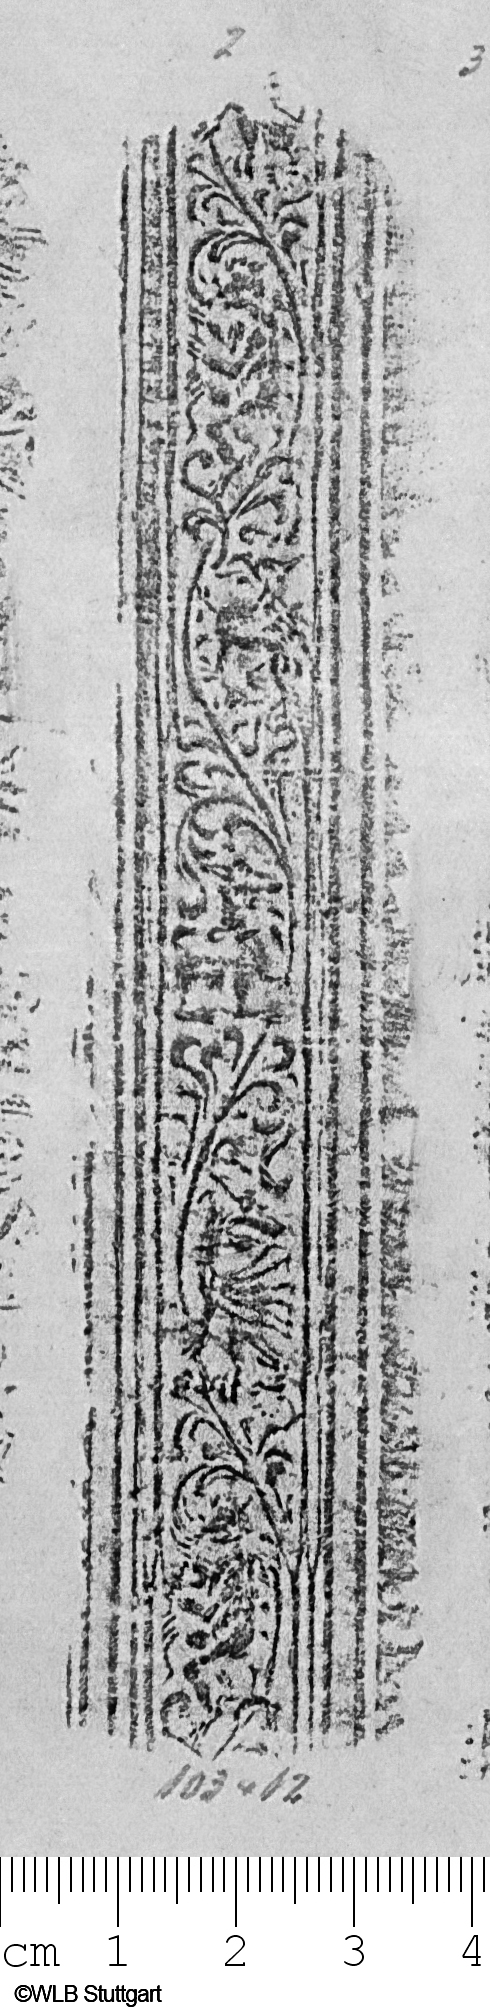 2
3
103 x 12
cm 1 2 3 4
©WLB Stuttgart